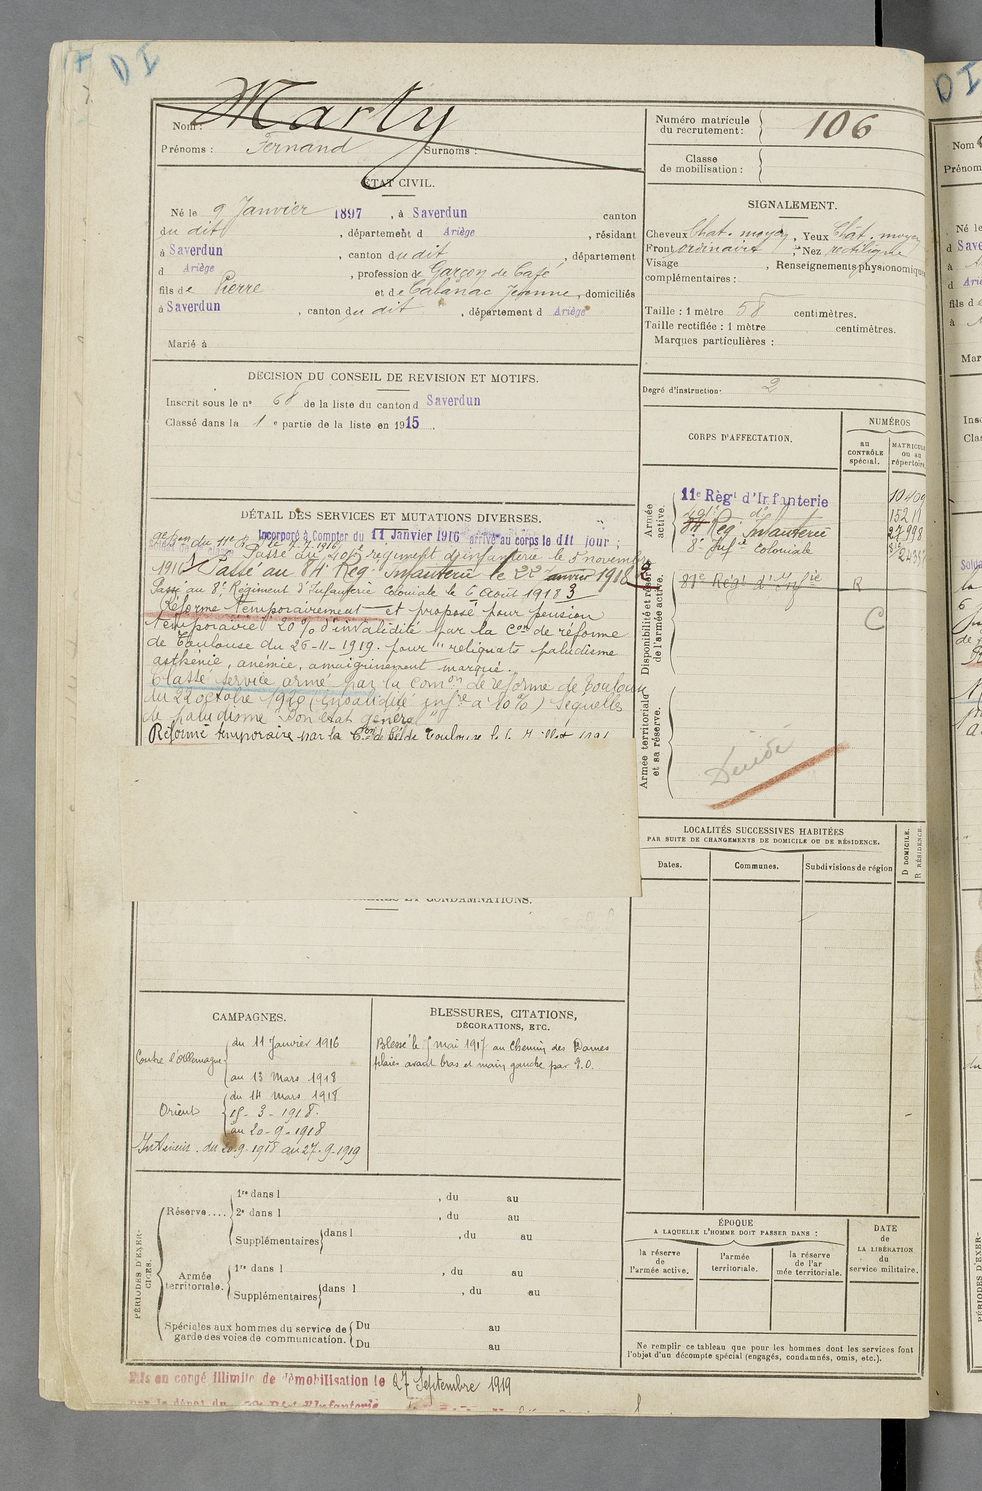 DI
Nom : Marty
Prénoms : Fernand Surnoms :
Numéro matricule
du recrutement : 106
Classe
de mobilisation :
ÉTAT CIVIL.
Né le 9 Janvier 1897, à Saverdun canton
du dit, département d Ariège, résidant
à Saverdun, canton du dit, département
d Ariège, profession de Garçon de Café
fils de Pierre et de Cabanac Jeanne, domiciliés
à Saverdun, canton du dit, département d Ariège
Marié à
SIGNALEMENT.
Cheveux Chat. moyen, Yeux Chat. moyen
Front ordinaire, Nez rectiligne
Visage , Renseignements physionomiques
complémentaires :
Taille : 1 mètre 58 centimètres.
Taille rectifiée : 1 mètre centimètres.
Marques particulières :
Degré d'instruction. 2
DÉCISION DU CONSEIL DE REVISION ET MOTIFS.
Inscrit sous le n° 68 de la liste du canton d Saverdun
Classé dans la 1 e partie de la liste en 1915.
DÉTAIL DES SERVICES ET MUTATIONS DIVERSES.
Incorporé à Compter du 11 Janvier 1916 arrivé au corps le dit jour ;
Passé au régiment d'infanterie le 5 novembre
1916 Passé au 84e Rég. Infanterie le 22 janvier 1918
Passé au 8e Régiment d'Infanterie Coloniale le 6 Août 1918 3
Réformé temporairement et proposé pour pension
temporaire 20% d'invalidité par la Con de réforme
de Toulouse du 26-11-1919. pour "reliquats paludisme
asthénie, anémie, amaigrissement marqué.
Classé service armé par la Comon de réforme de Toulouse
du 22 octobre 1920 (invalidité infre à 10%) Séquelles
de paludisme Bon état général"
Réformé temporaire par la Toulouse
ET CONDAMNATIONS.
CORPS D'AFFECTATION.
NUMÉROS
au
CONTRÔLE
spécial.
MATRICULE
ou au
répertoire
Armée
active.
11e Régt d'Infanterie
84 Rég Infanterie
8e Infie Coloniale
Disponibilité et réserve
de l'armée active.
81e Régt d'Infie R
C
Armée territoriale
et sa réserve.
LOCALITÉS SUCCESSIVES HABITÉES
PAR SUITE DE CHANGEMENTS DE DOMICILE OU DE RÉSIDENCE.
Dates. Communes. Subdivisions de région
D DOMICILE.
R RÉSIDENCE.
CAMPAGNES.
Contre l'Allemagne
du 11 Janvier 1916
au 13 Mars 1918
Orient
du 14 Mars 1918
15-3-1918.
au 20-9-1918
Intérieur. du 20.9-1918 au 27.9-1919
BLESSURES, CITATIONS,
DÉCORATIONS, ETC.
Blessé le mai 1917 au Chemin des Dames
plaies avant bras et main gauche par E.O.
PÉRIODES D'EXERCICES.
Réserve....
1re dans l , du au
2e dans l , du au
Supplémentaires dans l , du au
Armée
territoriale.
1re dans l , du au
Supplémentaires dans l , du au
Spéciales aux hommes du service de
garde des voies de communication.
Du au
Du au
ÉPOQUE
A LAQUELLE L'HOMME DOIT PASSER DANS :
la réserve
de
l'armée active.
l'armée
territoriale.
la réserve
de l'ar
mée territoriale.
DATE
de
LA LIBÉRATION
du
service militaire.
Ne remplir ce tableau que pour les hommes dont les services font
l'objet d'un décompte spécial (engagés, condamnés, omis, etc.).
Mis en congé illimité de démobilisation le 27 Septembre 1919